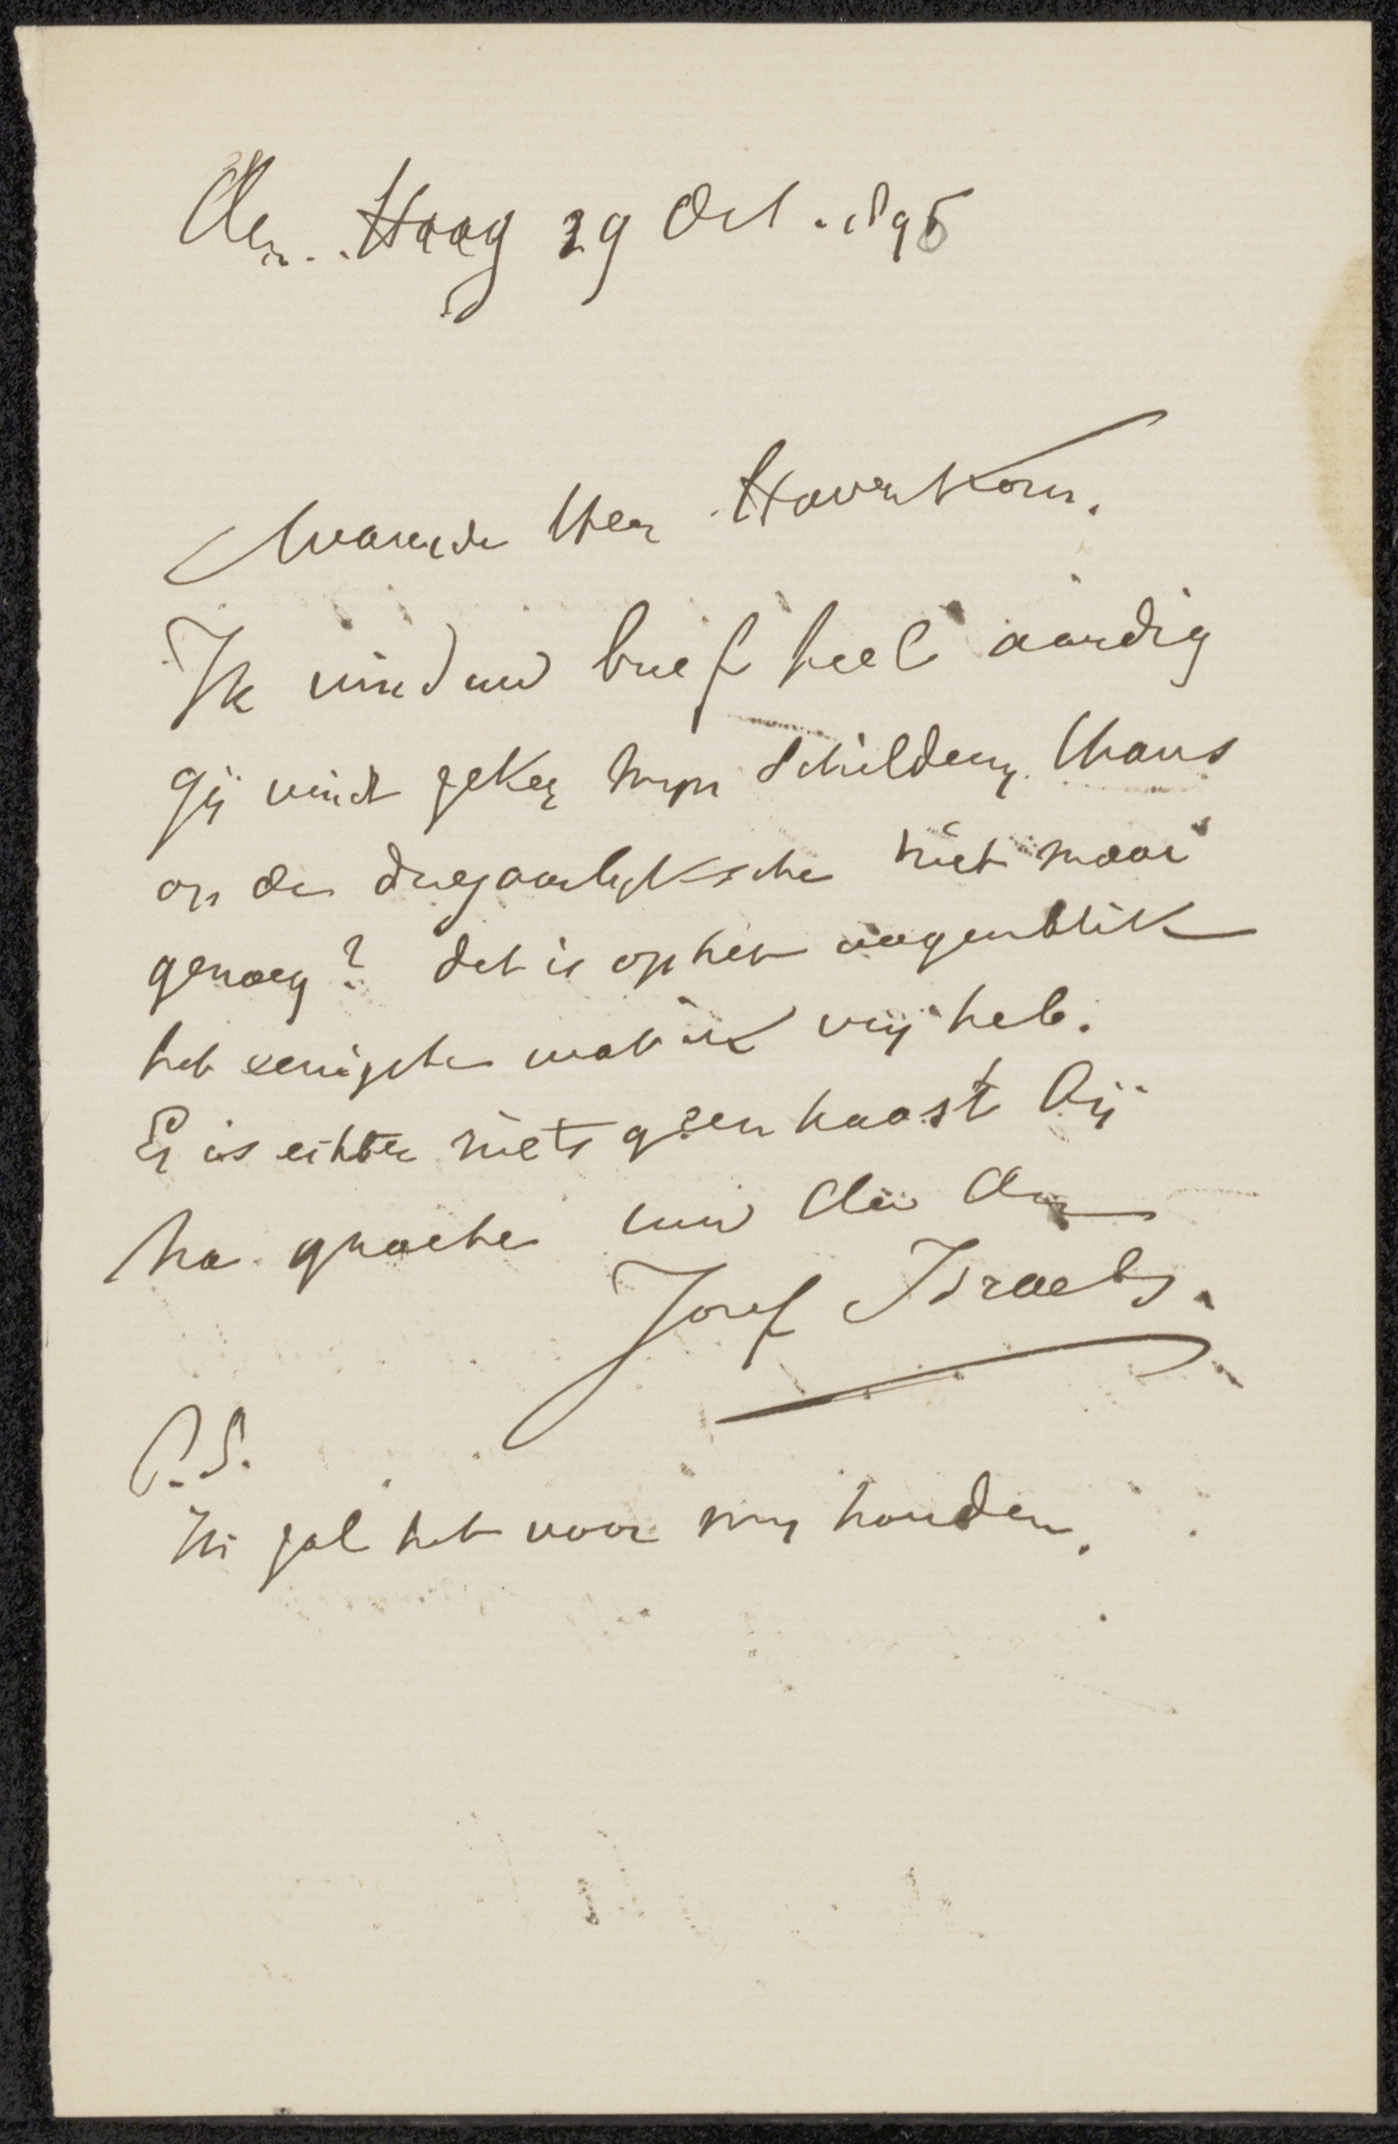 Den Haag 29 Oct. 1895
Waarde Heer Haverkorn.
Ik vind uw brief heel aardig
gij vindt zeker mijn Schildery thans
op de driejaarlyksche niet mooi
genoeg? dat is op het oogenblik
het eenigste wat ik vrij heb.
Er is echter niets geen haast bij
na groete uw dw dr
Jozef Israels.
P.S.
Ik zal het voor my houden.